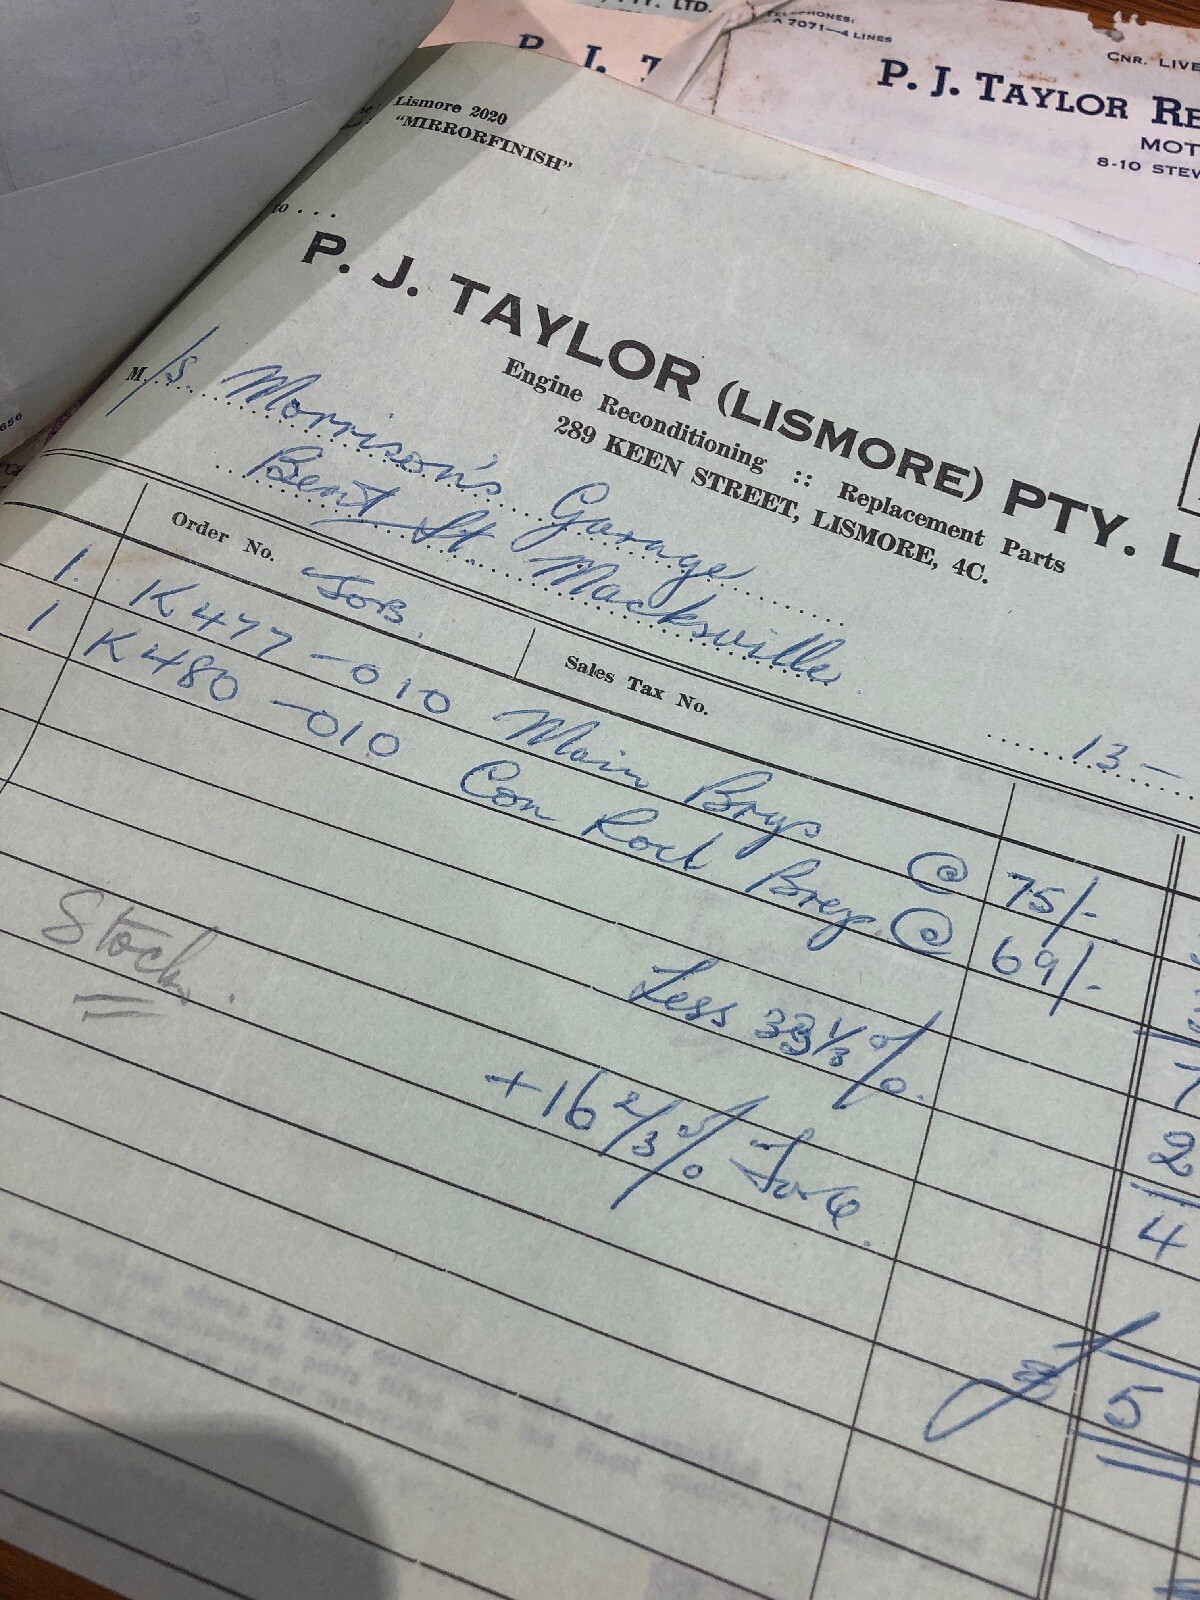 PTY. LTD.
P. J. T
TELEPHONES:
A 7071—4 LINES
CNR. LIVE
P. J. TAYLOR RE
MOT
8-10 STEW
Lismore 2020
"MIRRORFINISH"
to . . .
P. J. TAYLOR (LISMORE) PTY. L
Engine Reconditioning :: Replacement Parts
289 KEEN STREET, LISMORE, 4C.
M/s. Morrison's Garage
Bent St. Macksville
13 –
Order No. JOB. Sales Tax No.
1. K477 – 010 Main Brgs @ 75/-
1 K480 – 010 Con Rod Brgs. @ 69/-
7
Less 33 1/3 %. 2
Stock. 4
+ 16 2/3 %
£ 5
656